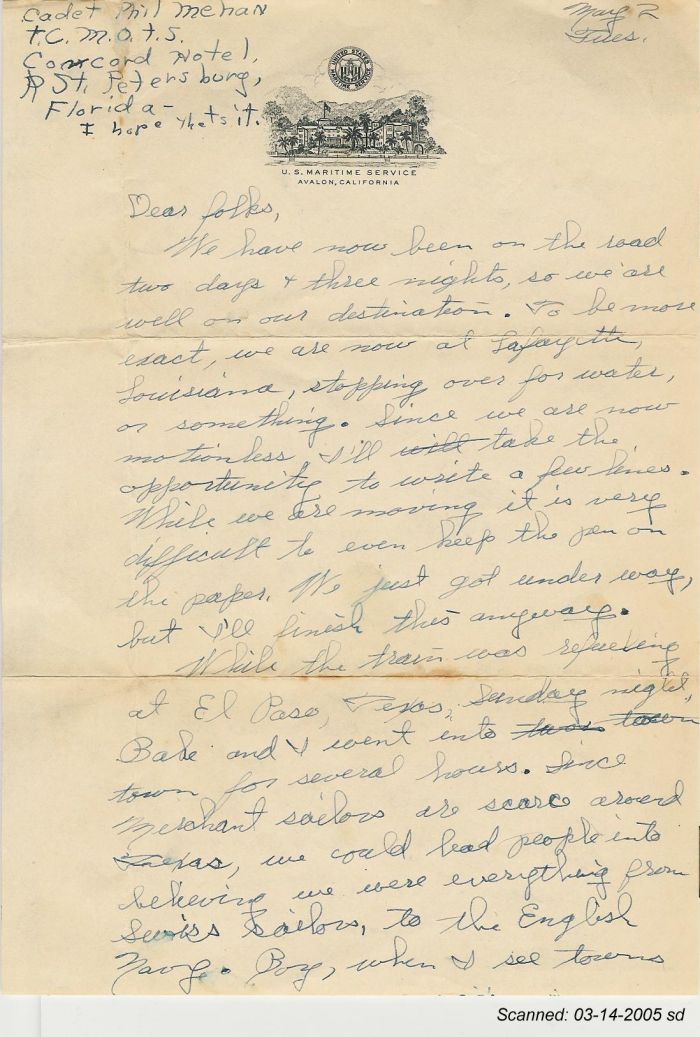 Cadet Phil Mehan
T.C.M.O.T.S.
Concord Hotel,
St. Petersburg,
Florida -
I hope thats it.
May 2
Tues.
UNITED STATES MARITIME SERVICE
U.S. MARITIME SERVICE
AVALON, CALIFORNIA
Dear folks,
We have now been on the road
two days + three nights, so we are
well on our destination. To be more
exact, we are now at Lafayette,
Louisiana, stopping over for water,
or something. Since we are now
motionless, I'll will take the
opportunity to write a few lines.
While we are moving it is very
difficult to even keep the pen on
the paper. We just got under way,
but I'll finish this anyway.
While the train was refueling
at El Paso, Texas, Sunday night,
Babe and I went into town
town for several hours. Since
Merchant sailors are scarce around
Texas, we could lead people into
believing we were everything from
Swiss Sailors, to the English
Navy. Boy, when I see towns
Scanned: 03-14-2005 sd